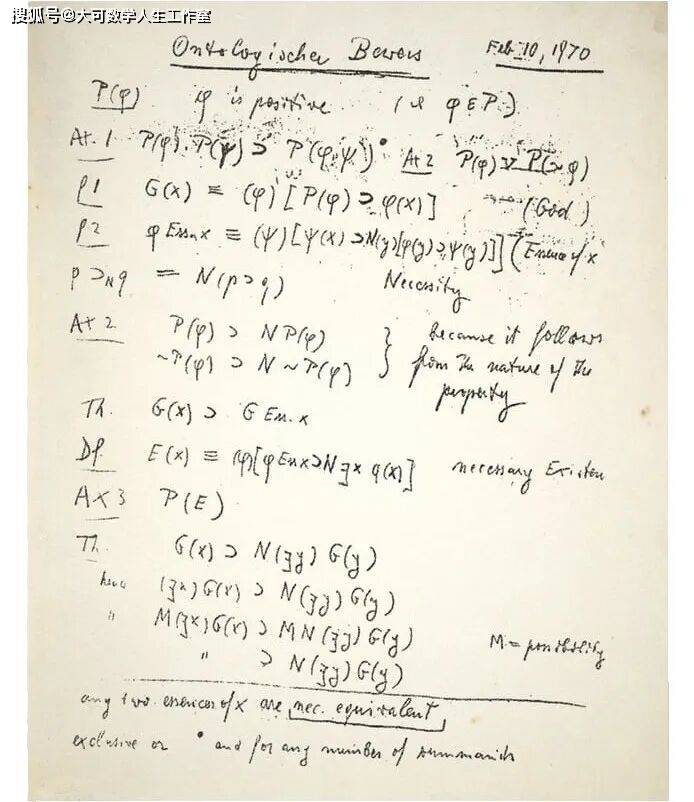 搜狐号@大可数学人生工作室
Ontologischer Beweis Feb 10, 1970
P(φ) φ is positive (i.e. φ ε P.)
At. 1 P(φ).P(ψ) ⊃ P(φ.ψ)• At 2 P(φ) ∨ P(~φ)
P1 G(x) ≡ (φ)[P(φ) ⊃ φ(x)] (God)
P2 φ Ess.x ≡ (ψ)[ψ(x) ⊃ N(y)[φ(y) ⊃ ψ(y)]] (Essence of x
p ⊃N q = N(p ⊃ q) Necessity
At 2 P(φ) ⊃ N P(φ) } because it follows
~P(φ) ⊃ N ~P(φ) } from the nature of the
property
Th. G(x) ⊃ G Ess.x
Df. E(x) ≡ (φ)[φ Ess x ⊃ N ∃x φ(x)] necessary Existen
Ax 3 P(E)
Th. G(x) ⊃ N(∃y) G(y)
hence (∃x)G(x) ⊃ N(∃y) G(y)
" M(∃x)G(x) ⊃ M N(∃y) G(y)
" ⊃ N(∃y) G(y) M = possibility
any two essences of x are nec. equivalent
exclusive or • and for any number of summands